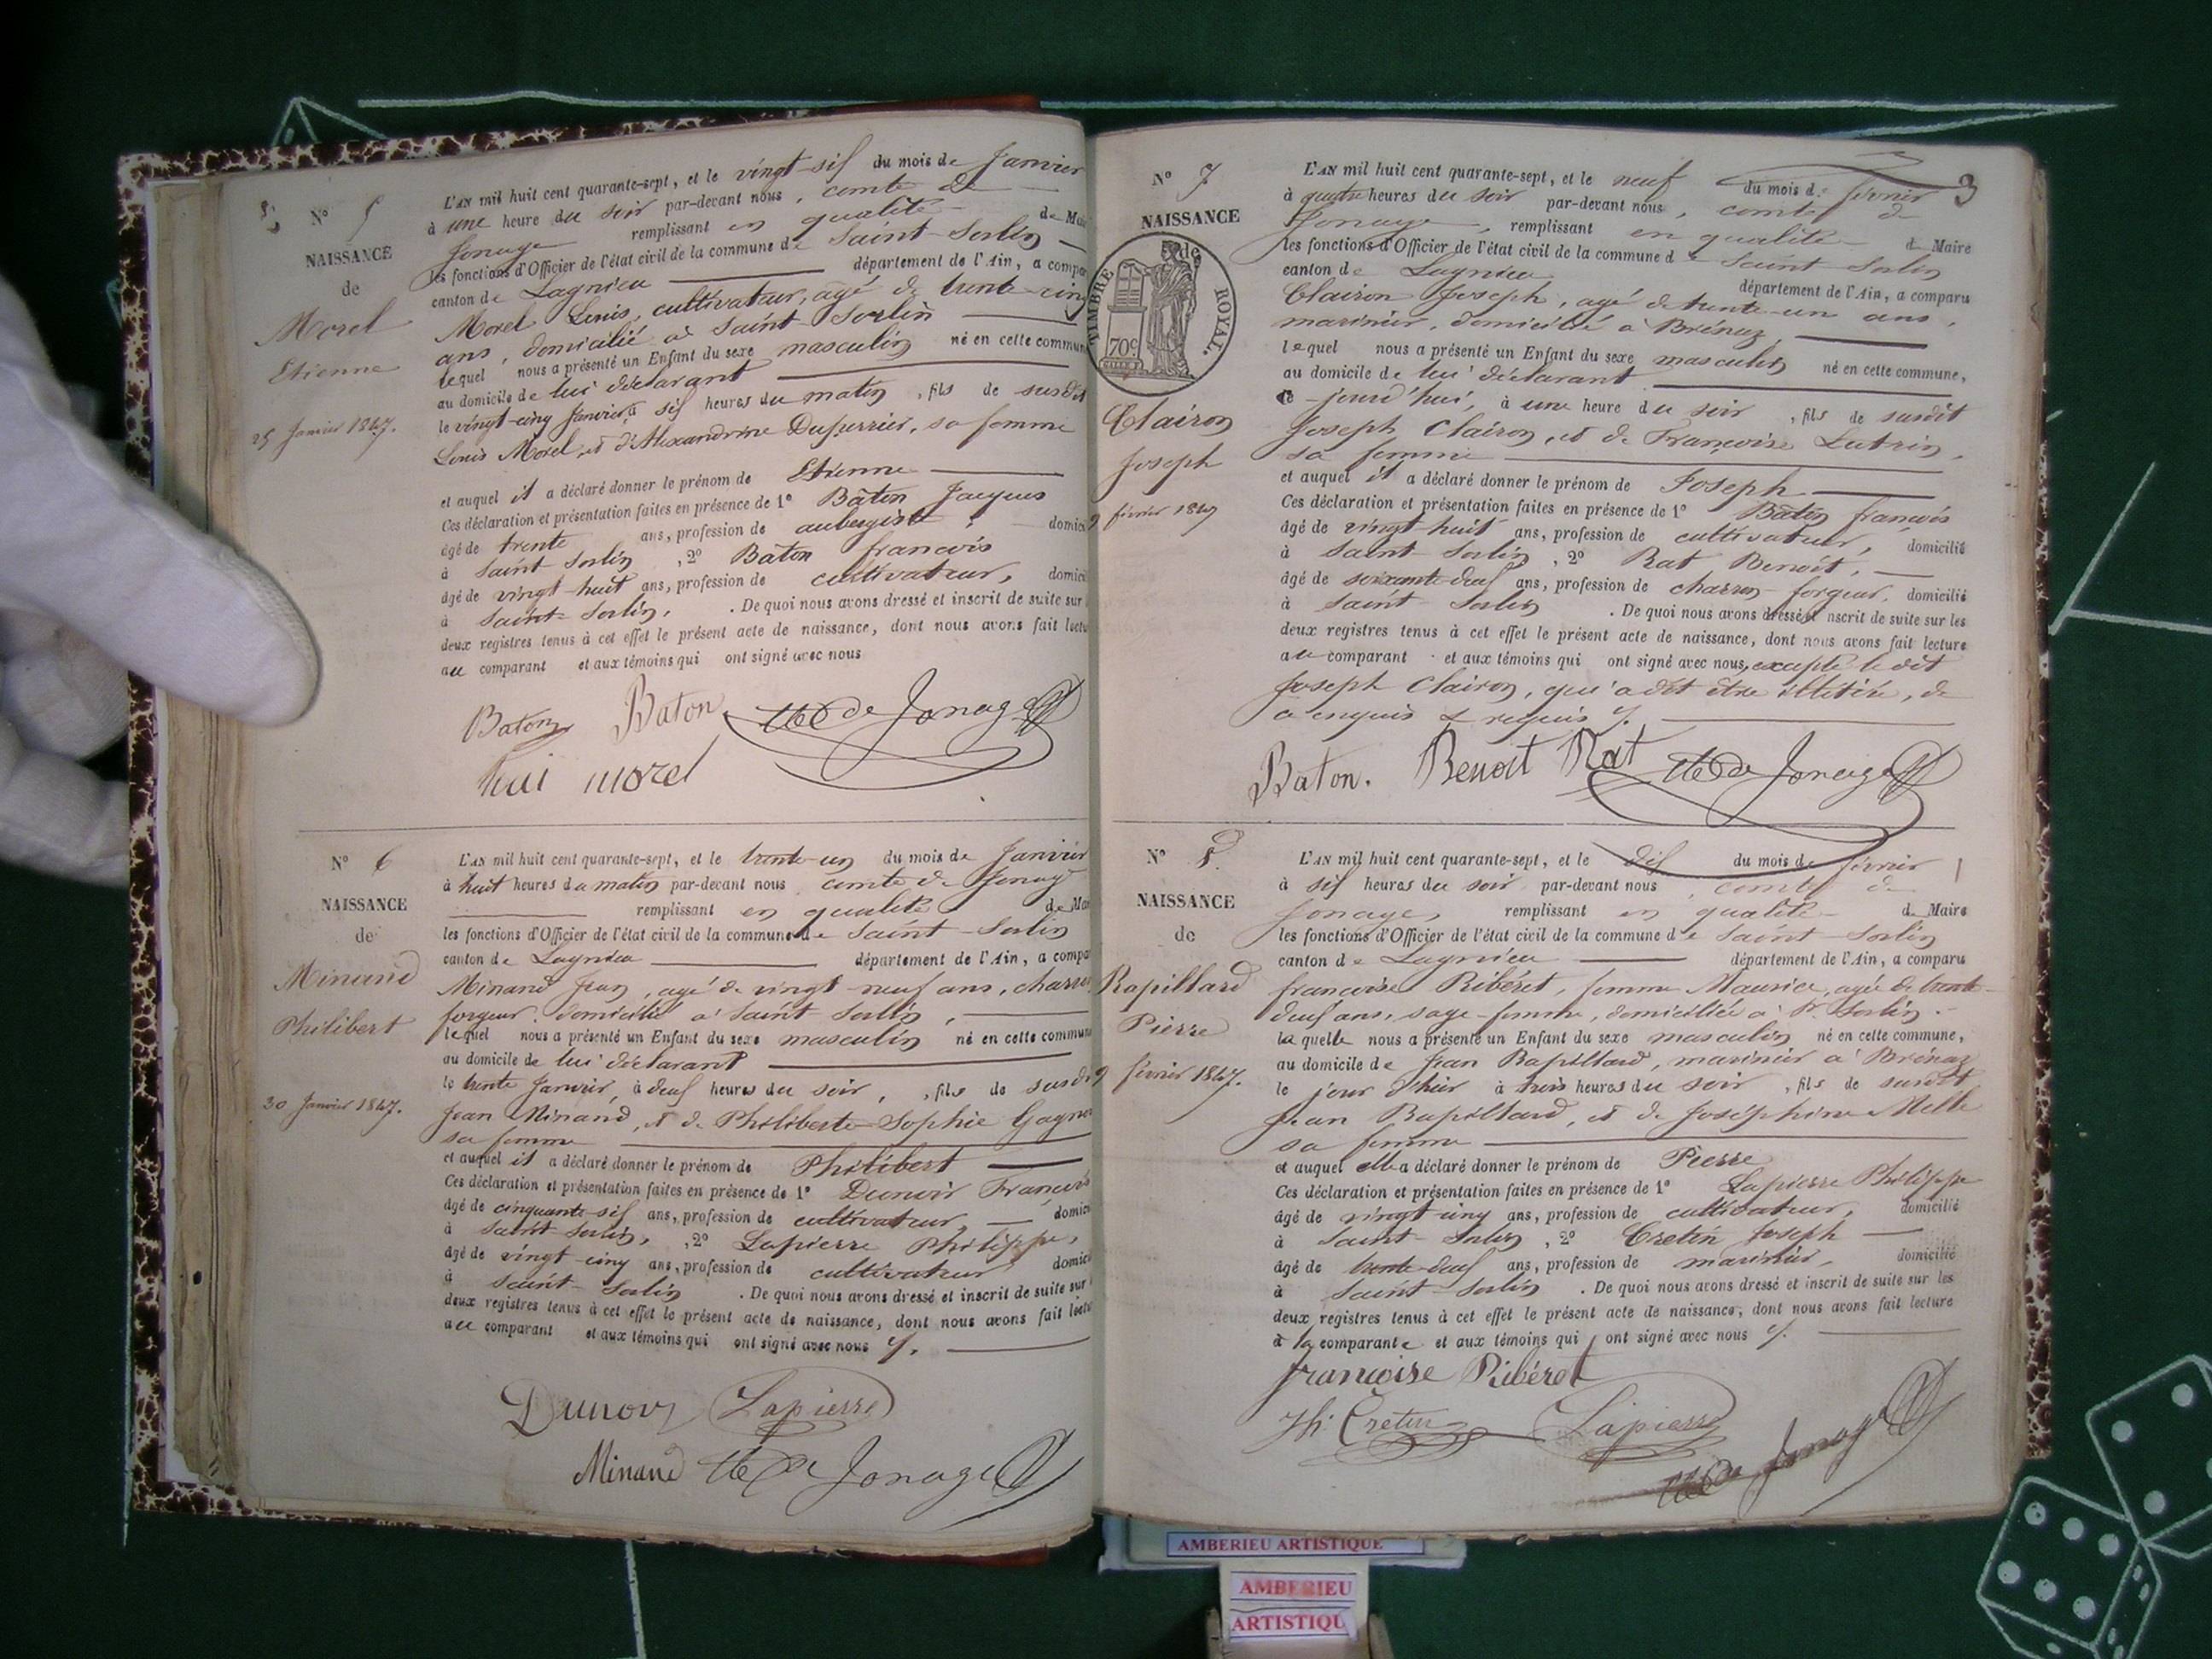 N° 5
NAISSANCE
de
Morel
Etienne
25 Janvier 1847.
L'AN mil huit cent quarante-sept, et le vingt-six du mois de Janvier
à une heure du soir par-devant nous, comte de
Jonage remplissant en qualité de Mai
les fonctions d'Officier de l'état civil de la commune de Saint-Sorlin
canton de Lagnieu département de l'Ain, a compa
Morel Louis, cultivateur, agé de trente-cinq
ans, domicilié à Saint-Sorlin
lequel nous a présenté un Enfant du sexe masculin né en cette commun
au domicile de lui déclarant
le vingt-cinq Janvier, à six heures du matin, fils de susdit
Louis Morel, et d'Alexandrine Duperrier, sa femme
et auquel il a déclaré donner le prénom de Etienne
Ces déclaration et présentation faites en présence de 1° Bâton Jacques
âgé de trente ans, profession de aubergiste, domici
à Saint Sorlin, 2° Bâton françois
âgé de vingt-huit ans, profession de cultivateur, domici
à Saint-Sorlin. De quoi nous avons dressé et inscrit de suite sur
deux registres tenus à cet effet le présent acte de naissance, dont nous avons fait lectu
au comparant et aux témoins qui ont signé avec nous
Baton Baton de Jonage
morel
N° 6
NAISSANCE
de
Minand
Philibert
30 Janvier 1847.
L'AN mil huit cent quarante-sept, et le trente-un du mois de Janvier
à huit heures du matin par-devant nous comte de Jonage
remplissant en qualité de Mai
les fonctions d'Officier de l'état civil de la commune de Saint-Sorlin
canton de Lagnieu département de l'Ain, a compa
Minand Jean, agé de vingt-neuf ans, charron
forgeur, domicilié à Saint Sorlin,
lequel nous a présenté un Enfant du sexe masculin né en cette commun
au domicile de lui déclarant
le trente Janvier, à deux heures du soir, fils de susdi
Jean Minand, et de Philiberte-Sophie
sa femme
et auquel il a déclaré donner le prénom de Philibert
Ces déclaration et présentation faites en présence de 1° Dunoir François
âgé de cinquante-six ans, profession de cultivateur, domici
à Saint-Sorlin, 2° Lapierre Philippe,
âgé de vingt-cinq ans, profession de cultivateur domici
à Saint-Sorlin. De quoi nous avons dressé et inscrit de suite sur
deux registres tenus à cet effet le présent acte de naissance, dont nous avons fait lectu
au comparant et aux témoins qui ont signé avec nous
Dunoir Lapierre
Minand de Jonage
3
N° 7
NAISSANCE
TIMBRE ROYAL.
70c
Clairon
Joseph
9 février 1847
L'AN mil huit cent quarante-sept, et le neuf du mois de février
à quatre heures du soir par-devant nous, comte de
Jonage, remplissant en qualité de Maire
les fonctions d'Officier de l'état civil de la commune de Saint-Sorlin
canton de Lagnieu département de l'Ain, a comparu
Clairon Joseph, agé de trente-un ans,
marinier, domicilié à Brénaz,
lequel nous a présenté un Enfant du sexe masculin né en cette commune,
au domicile de lui déclarant
ce-jourd'hui, à une heure du soir, fils de susdit
Joseph Clairon, et de Françoise Lutrin,
sa femme
et auquel il a déclaré donner le prénom de Joseph
Ces déclaration et présentation faites en présence de 1° Bâton françois
âgé de vingt huit ans, profession de cultivateur, domicilié
à Saint-Sorlin, 2° Rat Benoit,
âgé de soixante-deux ans, profession de charron-forgeur, domicilié
à Saint-Sorlin. De quoi nous avons dressé et inscrit de suite sur les
deux registres tenus à cet effet le présent acte de naissance, dont nous avons fait lecture
au comparant et aux témoins qui ont signé avec nous, excepté le dit
Joseph Clairon, qui a dit être illitéré, de
ce enquis & requis
Baton. Benoit Rat de Jonage
N° 8
NAISSANCE
de
Rapillard
Pierre
9 février 1847.
L'AN mil huit cent quarante-sept, et le dix du mois de février
à six heures du soir par-devant nous comte de
Jonage, remplissant en qualité de Maire
les fonctions d'Officier de l'état civil de la commune de Saint-Sorlin
canton de Lagnieu département de l'Ain, a comparu
françoise Ribéret, femme Maurice, agée de trente-
deux ans, sage-femme, domiciliée à St Sorlin.
laquelle nous a présenté un Enfant du sexe masculin né en cette commune,
au domicile de Jean Rapillard, marinier à Brénaz
le jour d'hier à trois heures du soir, fils de susdit
Jean Rapillard, et de Joséphine Melle
sa femme
et auquel elle a déclaré donner le prénom de Pierre
Ces déclaration et présentation faites en présence de 1° Lapierre Philippe
âgé de vingt-cinq ans, profession de cultivateur, domicilié
à Saint-Sorlin, 2° Cretin Joseph
âgé de trente-deux ans, profession de marinier, domicilié
à Saint-Sorlin. De quoi nous avons dressé et inscrit de suite sur les
deux registres tenus à cet effet le présent acte de naissance, dont nous avons fait lecture
à la comparante et aux témoins qui ont signé avec nous
francoise Ribéret
Cretin Lapierre
de Jonage
AMBERIEU ARTISTIQUE
AMBERIEU
ARTISTIQU